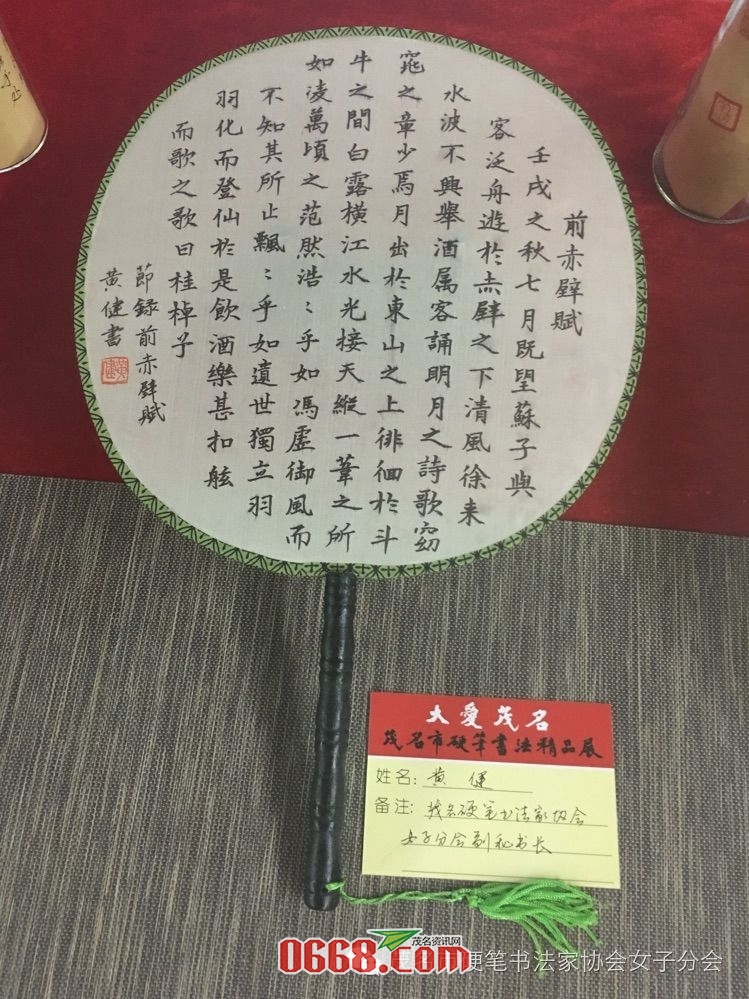 前赤壁賦
壬戌之秋七月既望蘇子與
客泛舟遊於赤壁之下清風徐来
水波不興舉酒属客誦明月之詩歌窈
窕之章少焉月出於東山之上徘徊於斗
牛之間白露橫江水光接天縱一葦之所
如凌萬頃之范然浩〻乎如馮虛御風而
不知其所止飄〻乎如遺世獨立羽
羽化而登仙於是飲酒樂甚扣舷
而歌之歌曰桂棹子
節錄前赤壁賦
黄健書
黄健
大愛茂名
茂名市硬筆書法精品展
姓名：黄健
备注：茂名硬笔书法家协会
女子分会副秘书长
茂名资讯网
0668.com
硬笔书法家协会女子分会